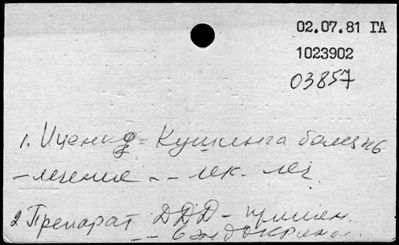 02.07.81 ГА
1023902
03857
1. Иценко-Кушинга болезнь
- лечение -- лек. леч
2 Препарат ДДД - примен.
-- в эндокринол.